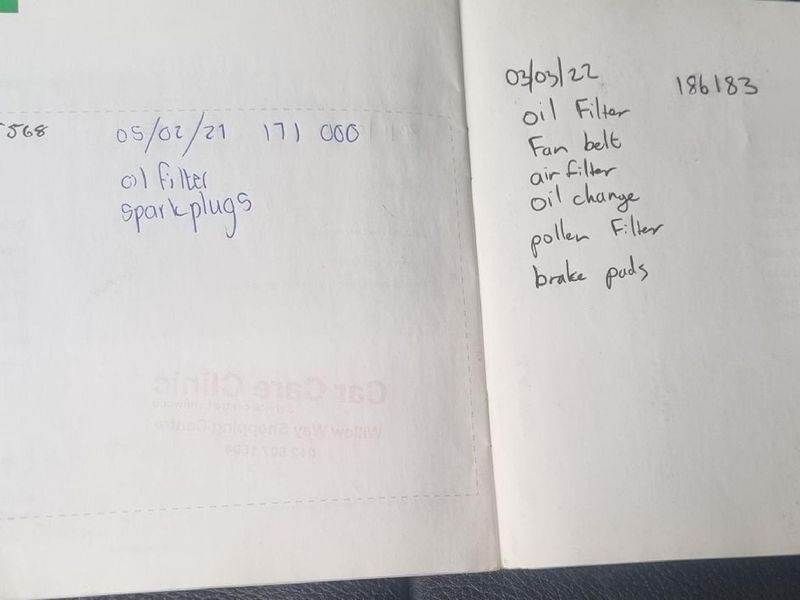 568
05/02/21 171 000
oil filter
sparkplugs
Car Care Clinic
Willow Way Shopping Centre
03/03/22 186183
oil Filter
Fan belt
air filter
oil change
pollen Filter
brake pads